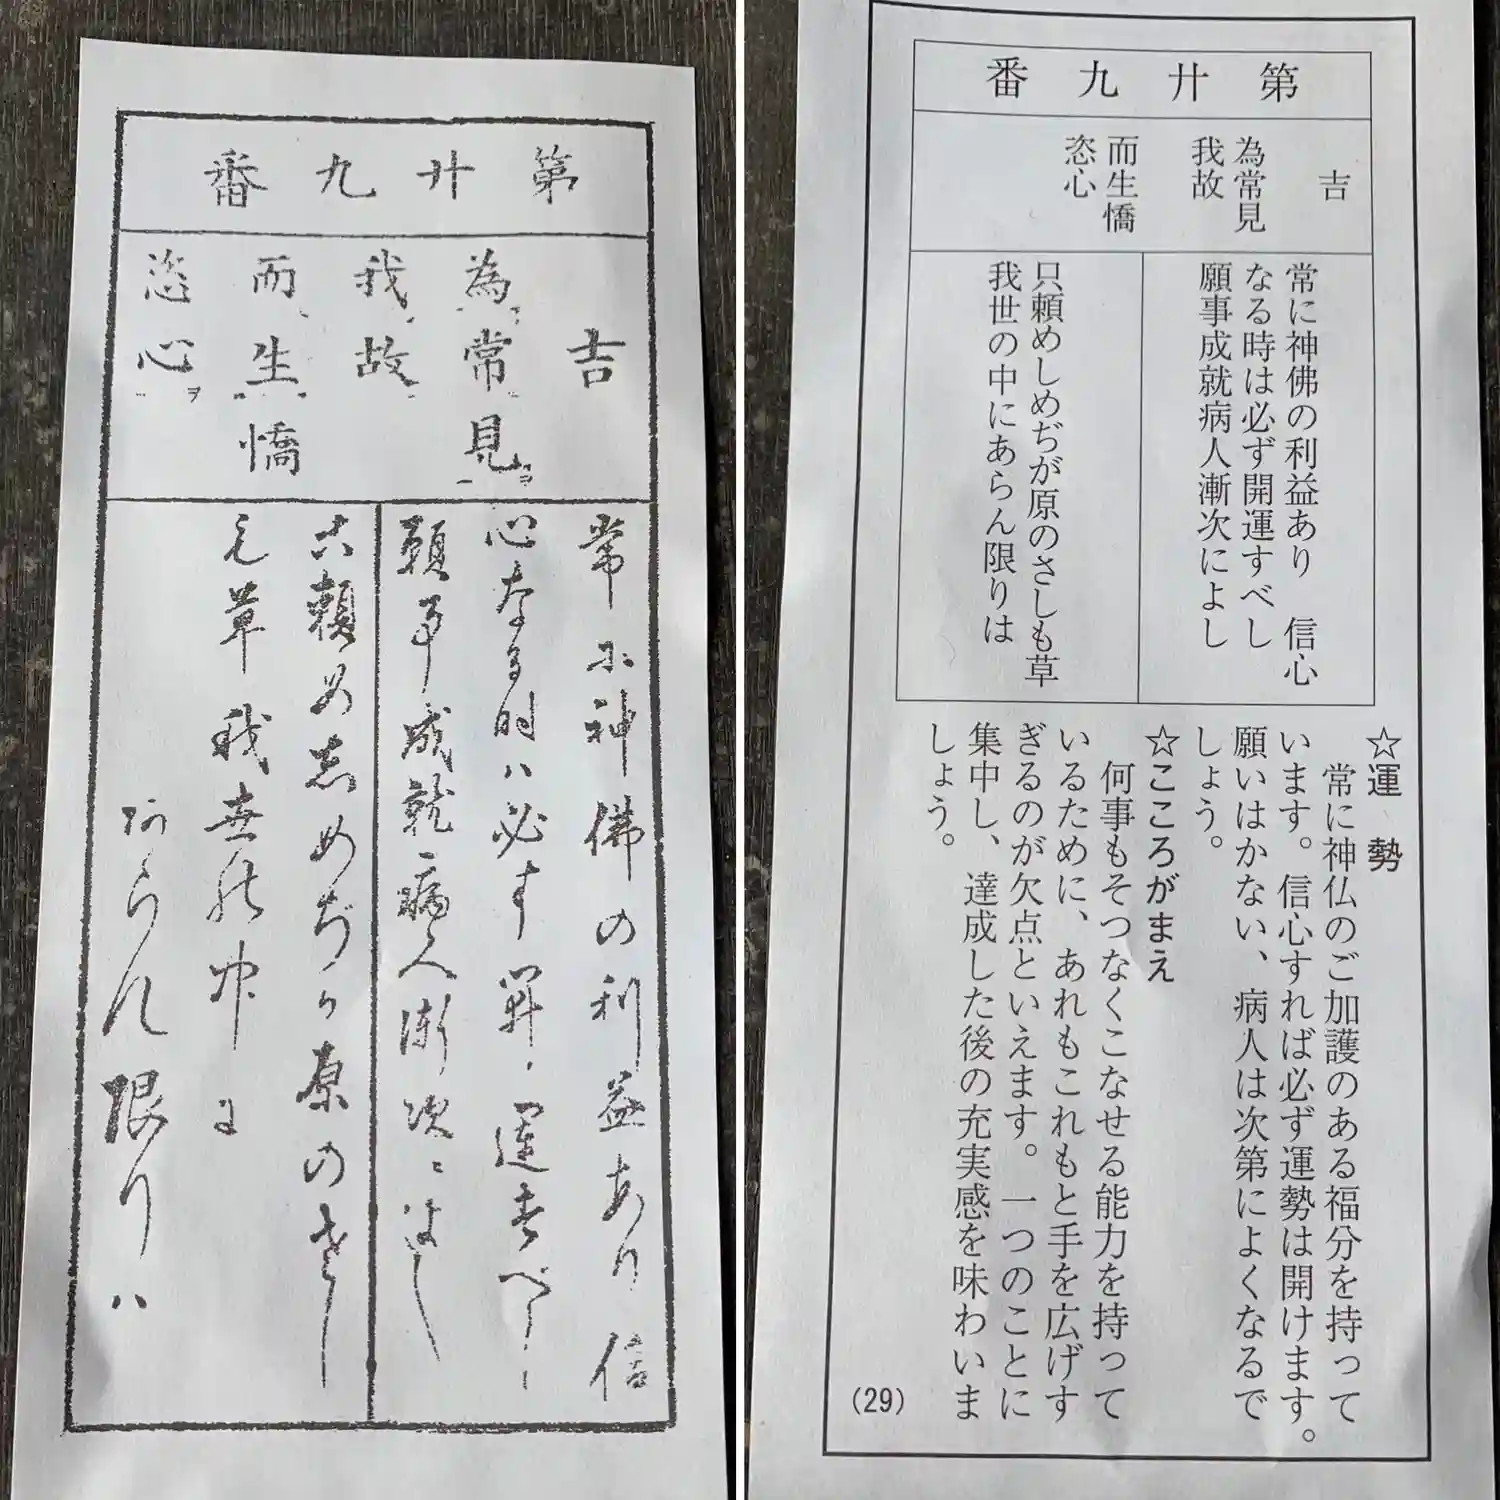 第廿九番
吉
為常見
我故
而生憍
恣心
常に神佛の利益あり信
心なる時ハ必す開運すべし
願事成就病人漸次によし
只頼めしめぢが原のさし
も草我世の中に
あらん限りハ
第廿九番
吉
為常見
我故
而生憍
恣心
常に神佛の利益あり 信心
なる時は必ず開運すべし
願事成就病人漸次によし
只頼めしめぢが原のさしも草
我世の中にあらん限りは
☆運 勢
常に神仏のご加護のある福分を持って
います。信心すれば必ず運勢は開けます。
願いはかない、病人は次第によくなるで
しょう。
☆こころがまえ
何事もそつなくこなせる能力を持って
いるために、あれもこれもと手を広げす
ぎるのが欠点といえます。一つのことに
集中し、達成した後の充実感を味わいま
しょう。
(29)